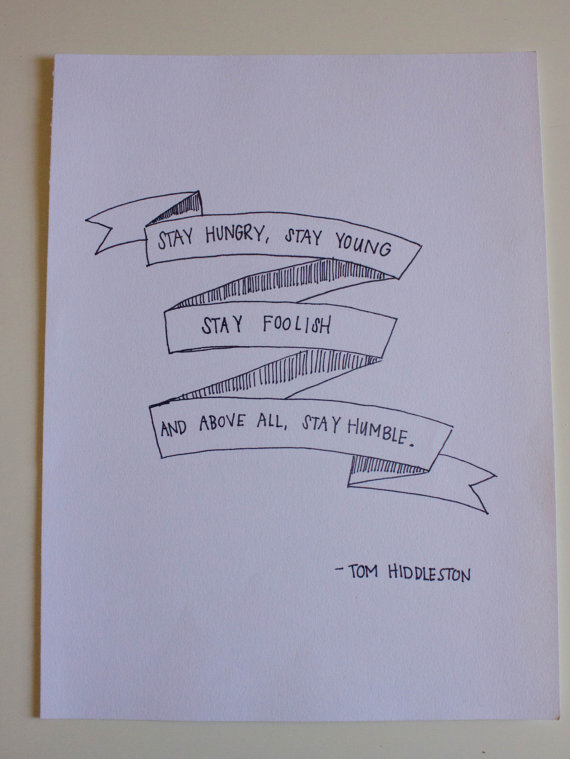 STAY HUNGRY, STAY YOUNG
STAY FOOLISH
AND ABOVE ALL, STAY HUMBLE.
- TOM HIDDLESTON